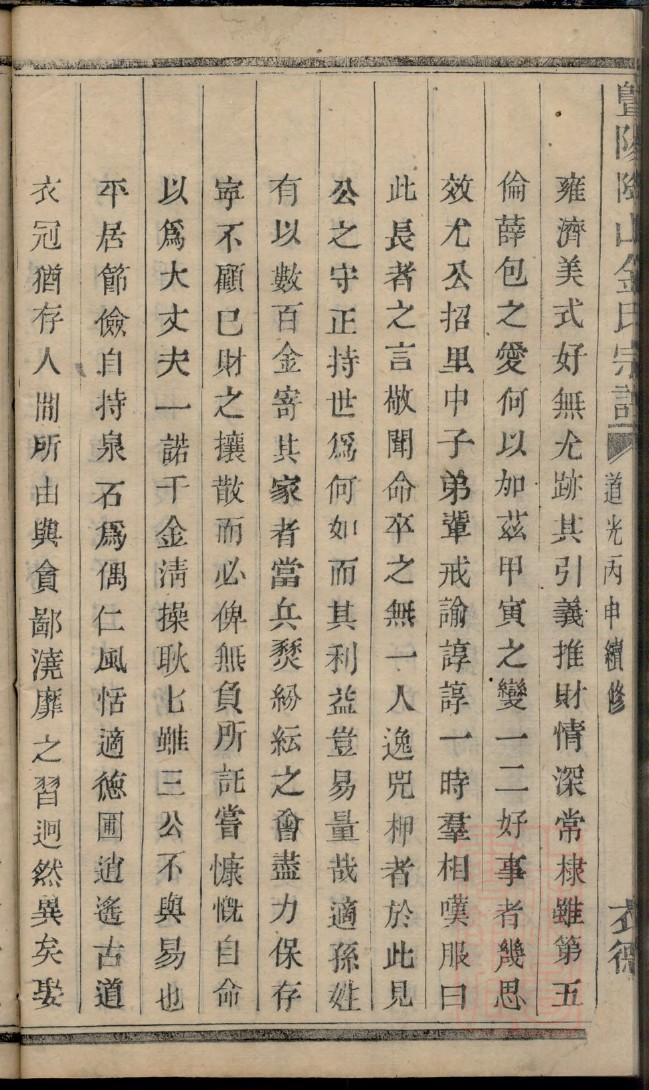 暨陽陶山金氏宗譜 道光丙申續修
雍濟美式好無尤跡其引義推財情深常棣雖第五
倫薛包之愛何以加茲甲寅之變一二好事者幾思
效尤公招里中子弟輩戒諭諄諄一時羣相嘆服曰
此長者之言敬聞命卒之無一人逸兕柙者於此見
公之守正持世爲何如而其利益豈易量哉適孫姓
有以數百金寄其家者當兵燹紛紜之會盡力保存
寧不顧已財之攘散而必俾無負所託嘗慷慨自命
以爲大丈夫一諾千金淸操耿匕雖三公不與易也
平居節儉自持泉石爲偶仁風恬適德圃逍遙古道
衣冠猶存人間所由與貪鄙澆靡之習迥然異矣娶